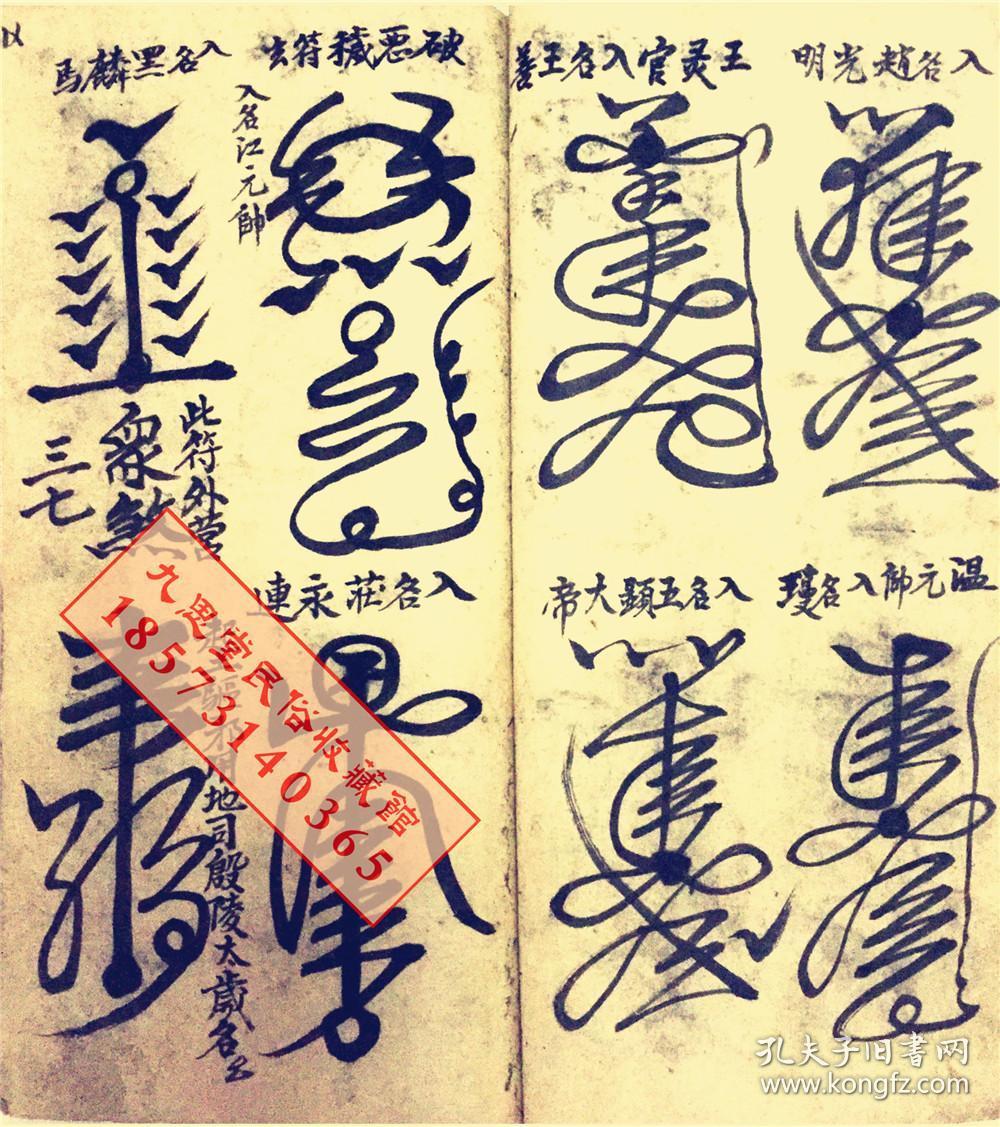 入名趙光明
王灵官入名王善
温元帥入名瓊
入名五顯大帝
破惡穢符式
入名江元帥
入名黑麟馬
此符外营
眾煞
三七
入名莊永連
地司殷陵太歲名
九思堂民俗收藏館
18573140365
孔夫子旧书网
www.kongfz.com